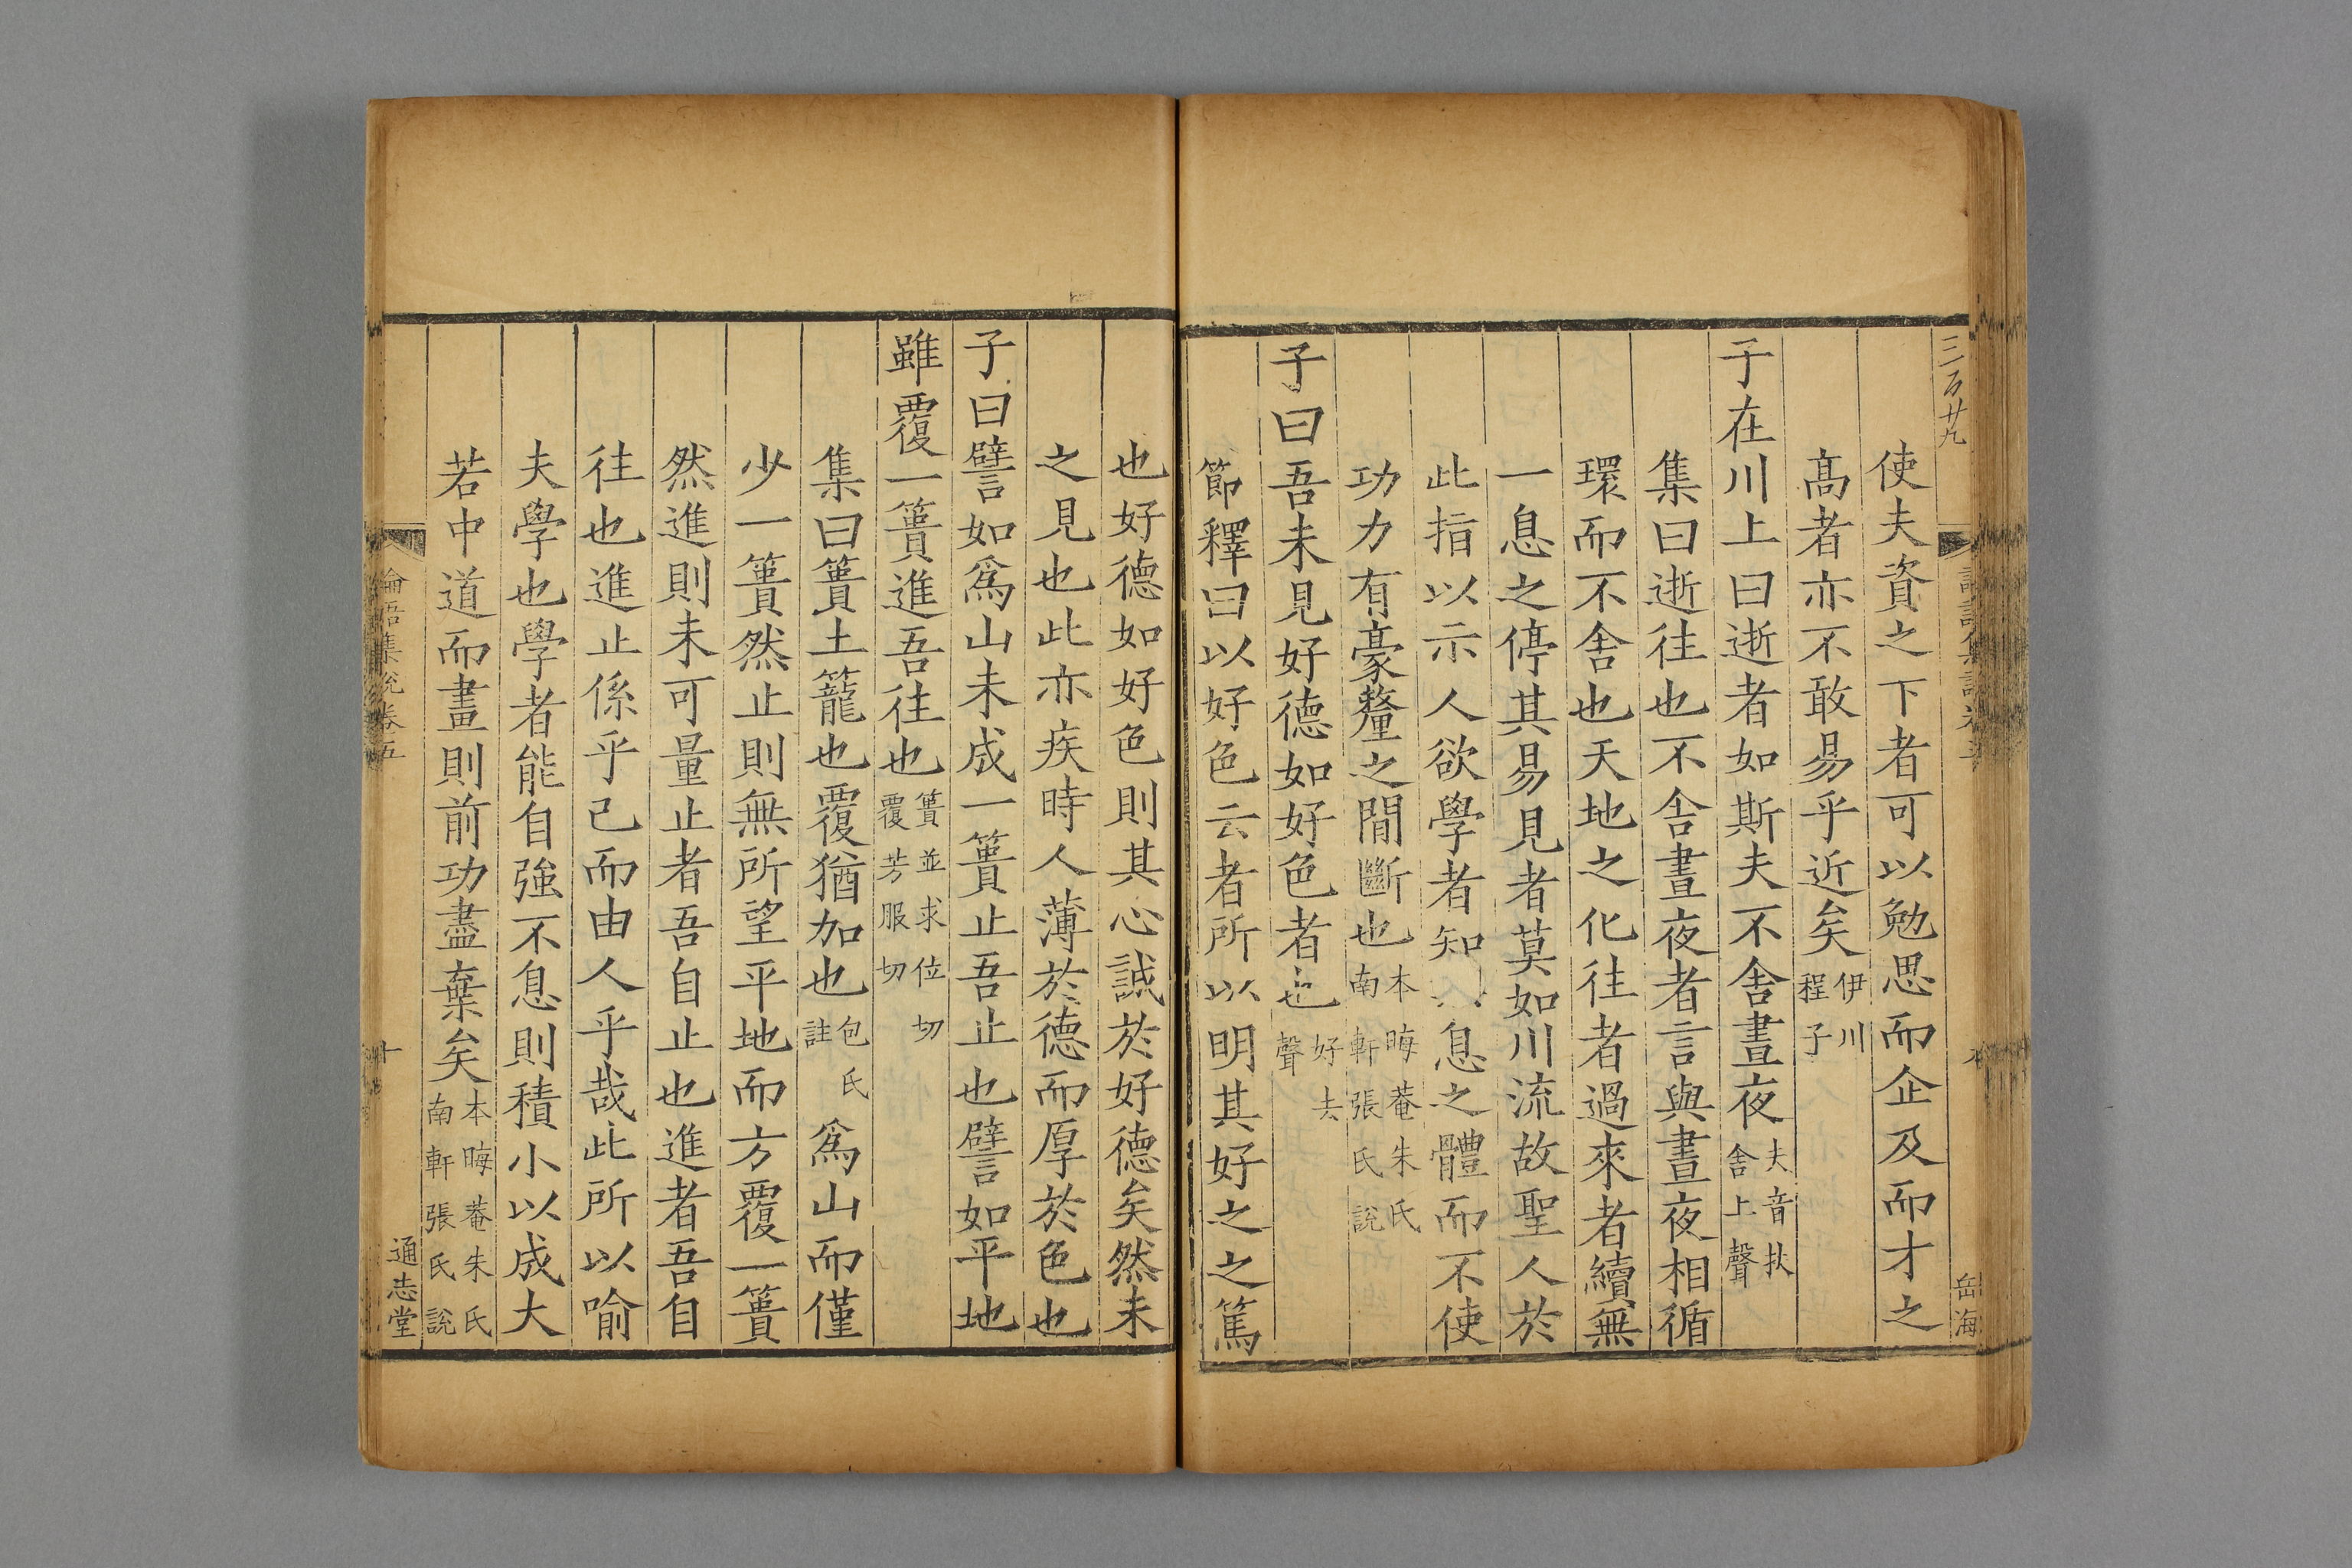 三百廿九
使夫資之下者可以勉思而企及而才之
高者亦不敢易乎近矣伊川程子
子在川上曰逝者如斯夫不舍晝夜夫音扶舍上聲
集曰逝往也不舍晝夜者言與晝夜相循
環而不舍也天地之化往者過來者續無
一息之停其易見者莫如川流故聖人於
此指以示人欲學者知息之體而不使
功力有豪釐之閒斷也本晦菴朱氏南軒張氏說
子曰吾未見好德如好色者也好去聲
節釋曰以好色云者所以明其好之之篤
岳海
也好德如好色則其心誠於好德矣然未
之見也此亦疾時人薄於德而厚於色也
子曰譬如爲山未成一簣止吾止也譬如平地
雖覆一簣進吾往也簣並求位切覆芳服切
集曰簣土籠也覆猶加也包氏註爲山而僅
少一簣然止則無所望平地而方覆一簣
然進則未可量止者吾自止也進者吾自
往也進止係乎己而由人乎哉此所以喻
夫學也學者能自強不息則積小以成大
若中道而畫則前功盡棄矣本晦菴朱氏南軒張氏說
論語集說卷五
十
通志堂